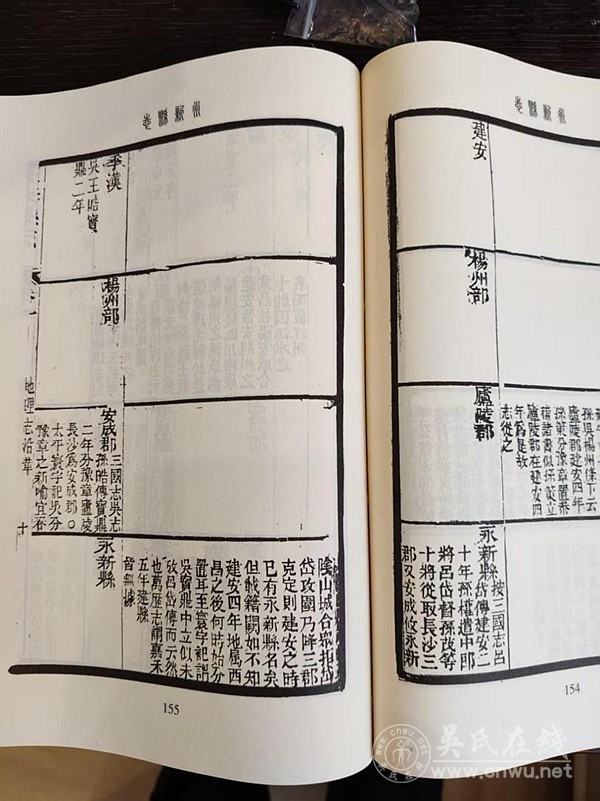 永新縣志
孫吳楊州條下云
廬陵郡建安四年
權諸書似孫策立
廬陵郡在建安四
年爲是故
志從之
建安
楊州部
廬陵郡
永新縣
按三國志呂
岱傳建安二
十年孫權遣中郎
將呂岱督孫茂等
十將從取長沙三
郡又安成攸永新
154
永新縣志
陰山城合衆拒岱
岱攻圍乃降三郡
克定則建安之時
已有永新縣名矣
但載籍闕如不知
建安四年地屬西
昌之後何時始分
置耳至寰宇記謂
吳寶鼎中立似未
攷呂岱傳而云然
也萬歷志謂嘉禾
五年建縣
皆無據
季漢
吳王皓寶
鼎二年
楊州部
安成郡
三國志吳志
孫皓傳寶鼎
二年分豫章廬陵
長沙爲安成郡○
太平寰宇記吳分
豫章之新喻宜春
永新縣
地理志沿革
十
155
吳氏在线
www.cnwu.net